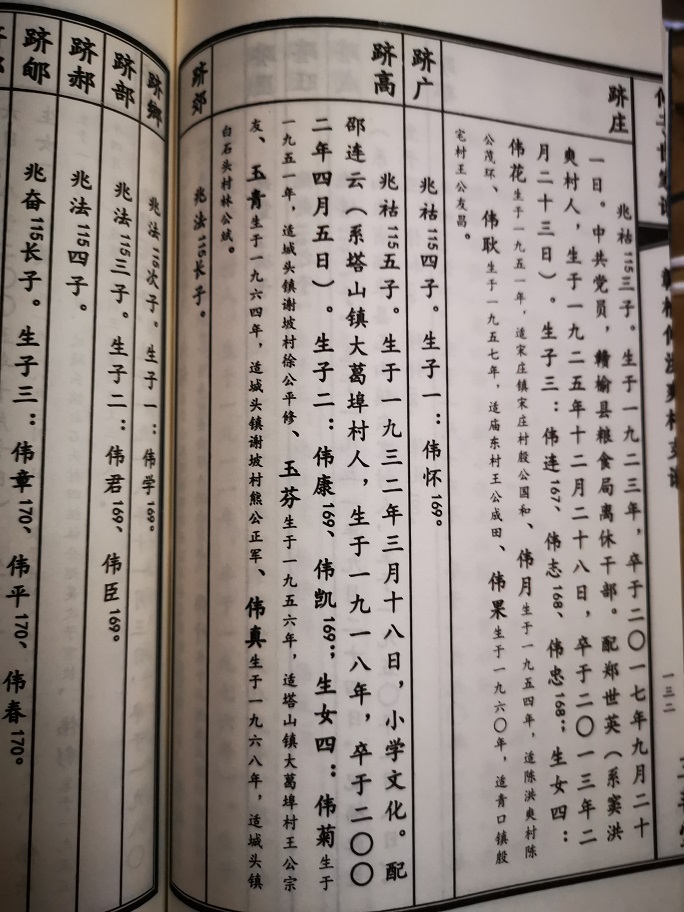 一三二
跻庄
兆祜115三子。生于一九二三年，卒于二〇一七年九月二十
一日。中共党员，赣榆县粮食局离休干部。配郑世英（系窦洪
爽村人，生于一九二五年十二月二十八日，卒于二〇一三年二
月二十三日）。生子三：伟连167、伟志168、伟忠168；生女四：
伟花生于一九五一年，适宋庄镇宋庄村殷公国和、伟月生于一九五四年，适陈洪爽村陈
公茂环、伟耿生于一九五七年，适庙东村王公成田、伟果生于一九六〇年，适青口镇殷
宅村王公友昌。
跻广
兆祜115四子。生子一：伟怀169。
跻高
兆祜115五子。生于一九三二年三月十八日，小学文化。配
邵连云（系塔山镇大葛埠村人，生于一九一八年，卒于二〇〇
二年四月五日）。生子二：伟康169、伟凯169；生女四：伟菊生于
一九五一年，适城头镇谢坡村徐公平修、玉芬生于一九五六年，适塔山镇大葛埠村王公宗
友、玉青生于一九六四年，适城头镇谢坡村熊公正军、伟真生于一九六八年，适城头镇
白石头村林公斌。
跻郊
兆法115长子。
跻乡
兆法115次子。生子一：伟学169。
跻部
兆法115三子。生子二：伟君169、伟臣169。
跻郝
兆法115四子。
跻郇
兆奋115长子。生子三：伟章170、伟平170、伟春170。